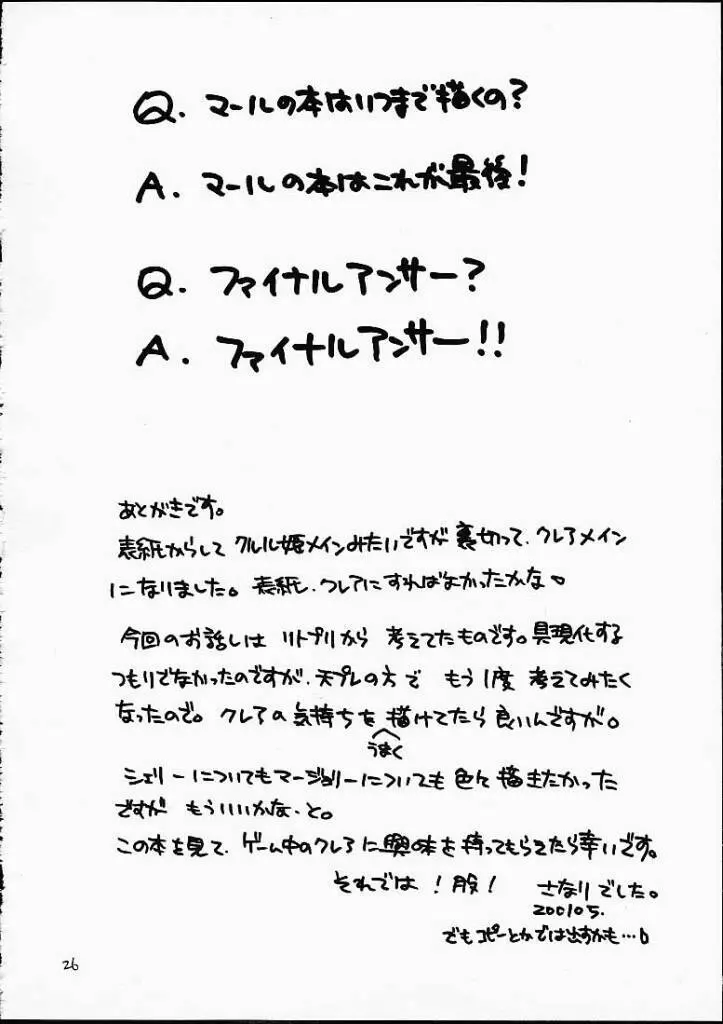 Q. マールの本はいつまで描くの？
A. マールの本はこれが最後！
Q. ファイナルアンサー？
A. ファイナルアンサー！！
あとがきです。
表紙からして クルル姫メインみたいですが 裏切って、クレアメイン
になりました。表紙、クレアにすればよかったかな。
今回のお話しは リトプリから 考えてたものです。具現化する
つもりでなかったのですが、天プレの方で もう1度 考えてみたく
なったので。クレアの気持ちを 描けてたら 良いんですが。
うまく
シェリーについてもマージョリーについても 色々 描きたかった
ですが もういいかな、と。
この本を見て、ゲーム中のクレアに興味を 持ってもらえたら幸いです。
それでは！股！ さなりでした。
200105.
でもコピーとかでは出すかも…
26